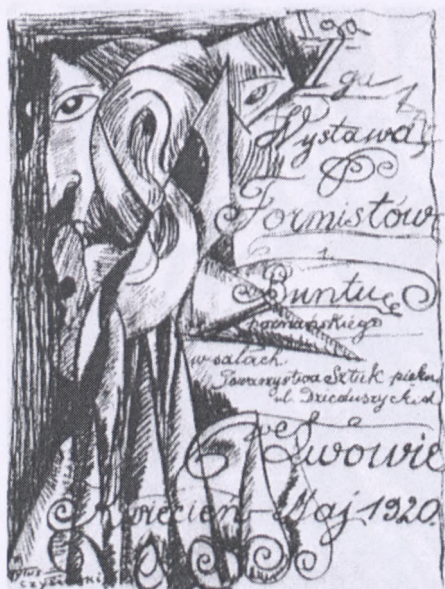 Wystawa
Formistów
i
Buntu
poznańskiego
w salach
Towarzystwa Sztuk piękn
ul Dzieduszyckich
we Lwowie
Kwiecień - Maj 1920.
Tytus
Czyżewski